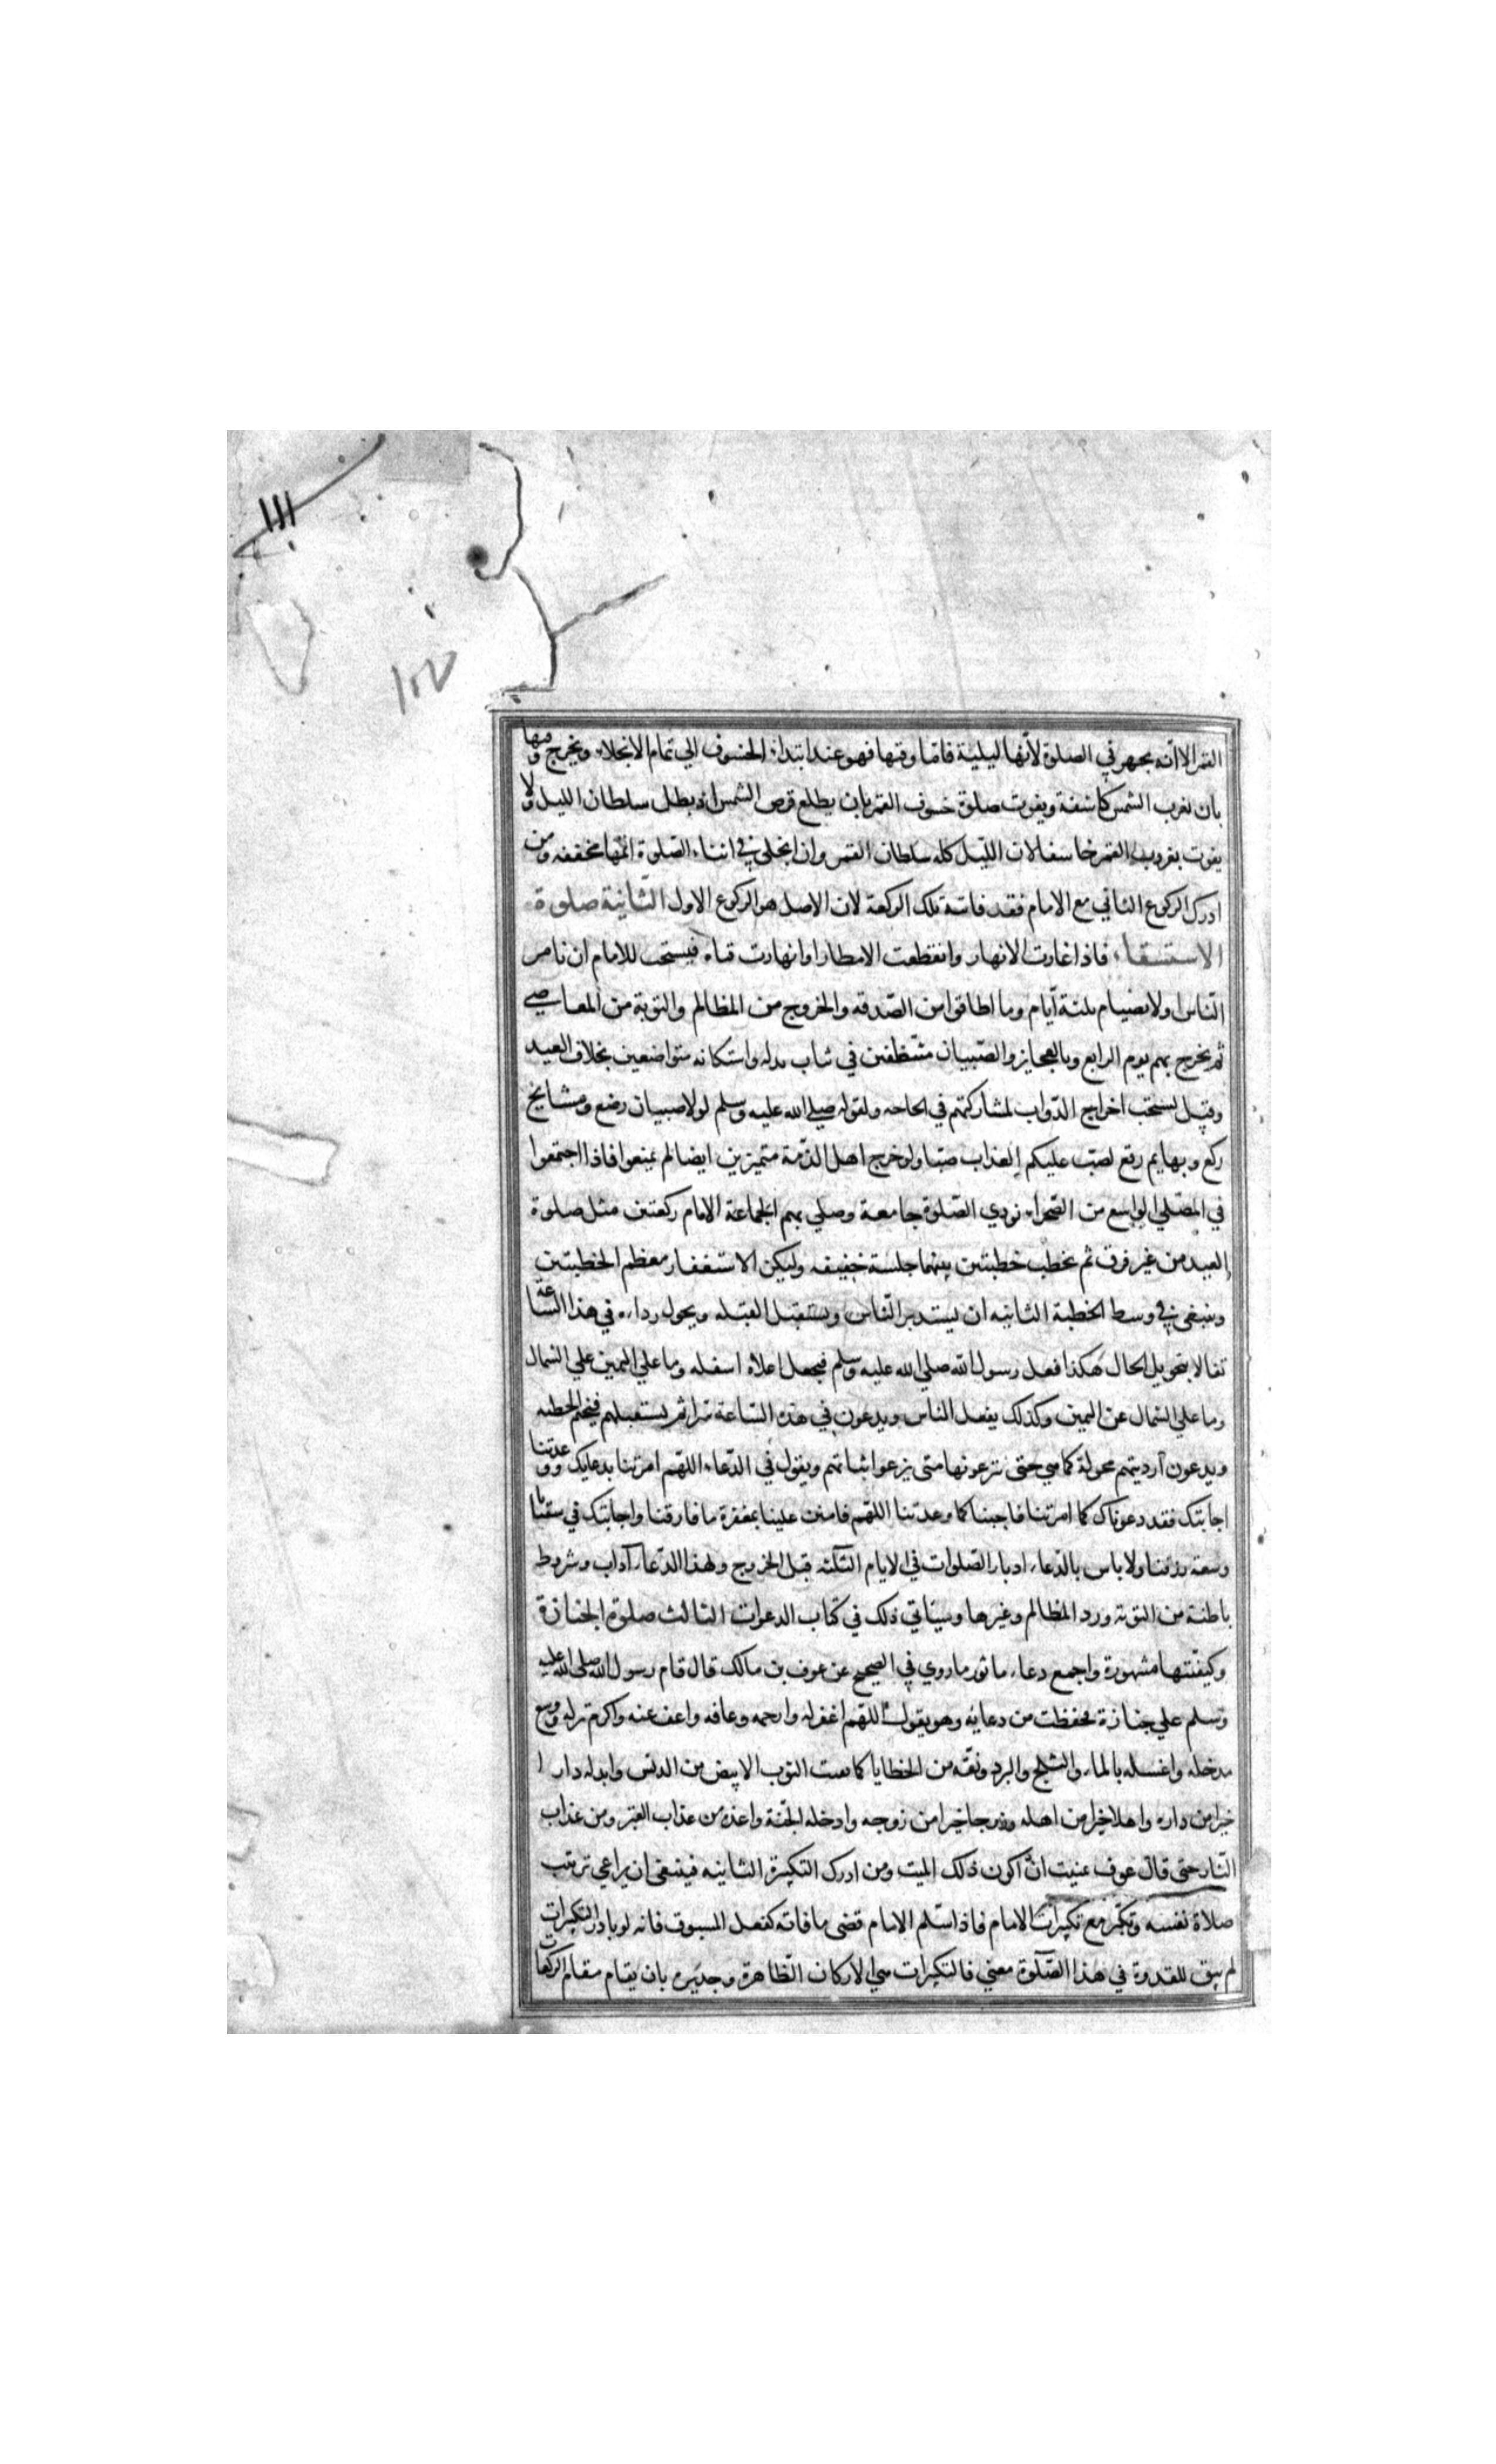 ااا
١٥٧
القمر الا انه يجهر في الصلوة لانها ليلية فاما وقتها فهو عند ابتداء الخسوف الي تمام الانجلاء ويخرج وقتها
بان تغرب الشمس كاسفة ويفوت صلوة خسوف القمر بان يطلع قرص الشمس اذ يبطل سلطان الليل ولا
يفوت بغروب القمر خاسفا لان الليل كله سلطان القمر وان انجلي في اثناء الصلوة اتمها مخففه ومن
ادرك الركوع الثاني مع الامام فقد فاتته تلك الركعة لان الاصل هو الركوع الاول الثانية صلوة
الاستسقاء فاذا غارت الانهار وانقطعت الامطار او انهارت قناه فيستحب للامام ان نامر
الناس اولا بصيام ثلثة ايام وما اطاقوا من الصدقه والخروج من المظالم والتوبة من المعاصي
ثم يخرج بهم يوم الرابع وبالعجايز والصبيان متنظفين في ثياب بدله واستكانه متواضعين بخلاف العيد
وقيل يستحب اخراج الدواب لمشاركتهم في الحاجه ولقوله صلي الله عليه وسلم لولا صبيان رضع ومشايخ
ركع وبهايم رتع لصب عليكم العذاب صبا ولو خرج اهل الذمة متميزين ايضا لم يمنعوا فاذا اجتمعوا
في المصلي الواسع من الصحراء نودي الصلوة جامعة وصلي بهم الجماعة الامام ركعتين مثل صلوة
العيد من غير فرق ثم يخطب خطبتين بينهما جلسة خفيفه وليكن الاستغفار معظم الخطبتين
وينبغي في وسط الخطبة الثانيه ان يستدبر الناس ويستقبل القبله ويحول رداءه في هذا الساعة
تفالا بتحويل الحال هكذا فعل رسول الله صلي الله عليه وسلم فيجعل اعلاه اسفله وما علي اليمين علي الشمال
وما علي الشمال عن اليمين وكذلك يفعل الناس ويدعون في هذه الساعة سرا ثم يستقبلهم فيختم الخطبه
ويدعون ارديتهم محولة كما هي حتى نزعونها متى نزعوا ثيابهم ويقول في الدعاء اللهم امرتنا بدعايك ووعدتنا
اجابتك فقد دعوناك كما امرتنا فاجبنا كما وعدتنا اللهم فامنن علينا بمغفرة ما فارقنا واجابتك في سقيانا
وسعة رزقنا ولا باس بالدعاء ادبار الصلوات في الايام الثلثة قبل الخروج ولهذا الدعاء آداب وشروط
باطنة من التوبه ورد المظالم وغيرها وسياتي ذلك في كتاب الدعوات الثالث صلوة الجنازة
وكيفيتها مشهورة واجمع دعاء ماثور ما روي في الصحيح عن عوف بن مالك قال قام رسول الله صلي الله عليه
وسلم علي جنازة فحفظت من دعايه وهو يقول اللهم اغفر له وارحمه وعافه واعف عنه واكرم نزله ووسع
مدخله واغسله بالماء والثلج والبرد ونقه من الخطايا كما نقيت الثوب الابيض من الدنس وابدله دارا
خيرا من داره واهلا خيرا من اهله وزوجا خيرا من زوجه وادخله الجنة واعذه من عذاب القبر ومن عذاب
النار حتى قال عوف تمنيت ان اكون ذلك الميت ومن ادرك التكبيرة الثانيه فينبغي ان يراعي ترتيب
صلاة نفسه ويكبر مع تكبيرات الامام فاذا سلم الامام قضى ما فاته كفعل المسبوق فانه لو بادر التكبيرات
لم يبق للقدوة في هذا الصلوة معني فالتكبيرات هي الاركان الظاهرة وجديره بان يقام مقام الركعات